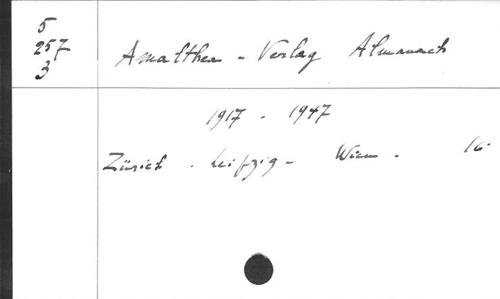 5
257
3
Amalthea - Verlag Almanach
1917 - 1947
Zürich . Leipzig - Wien . 16°